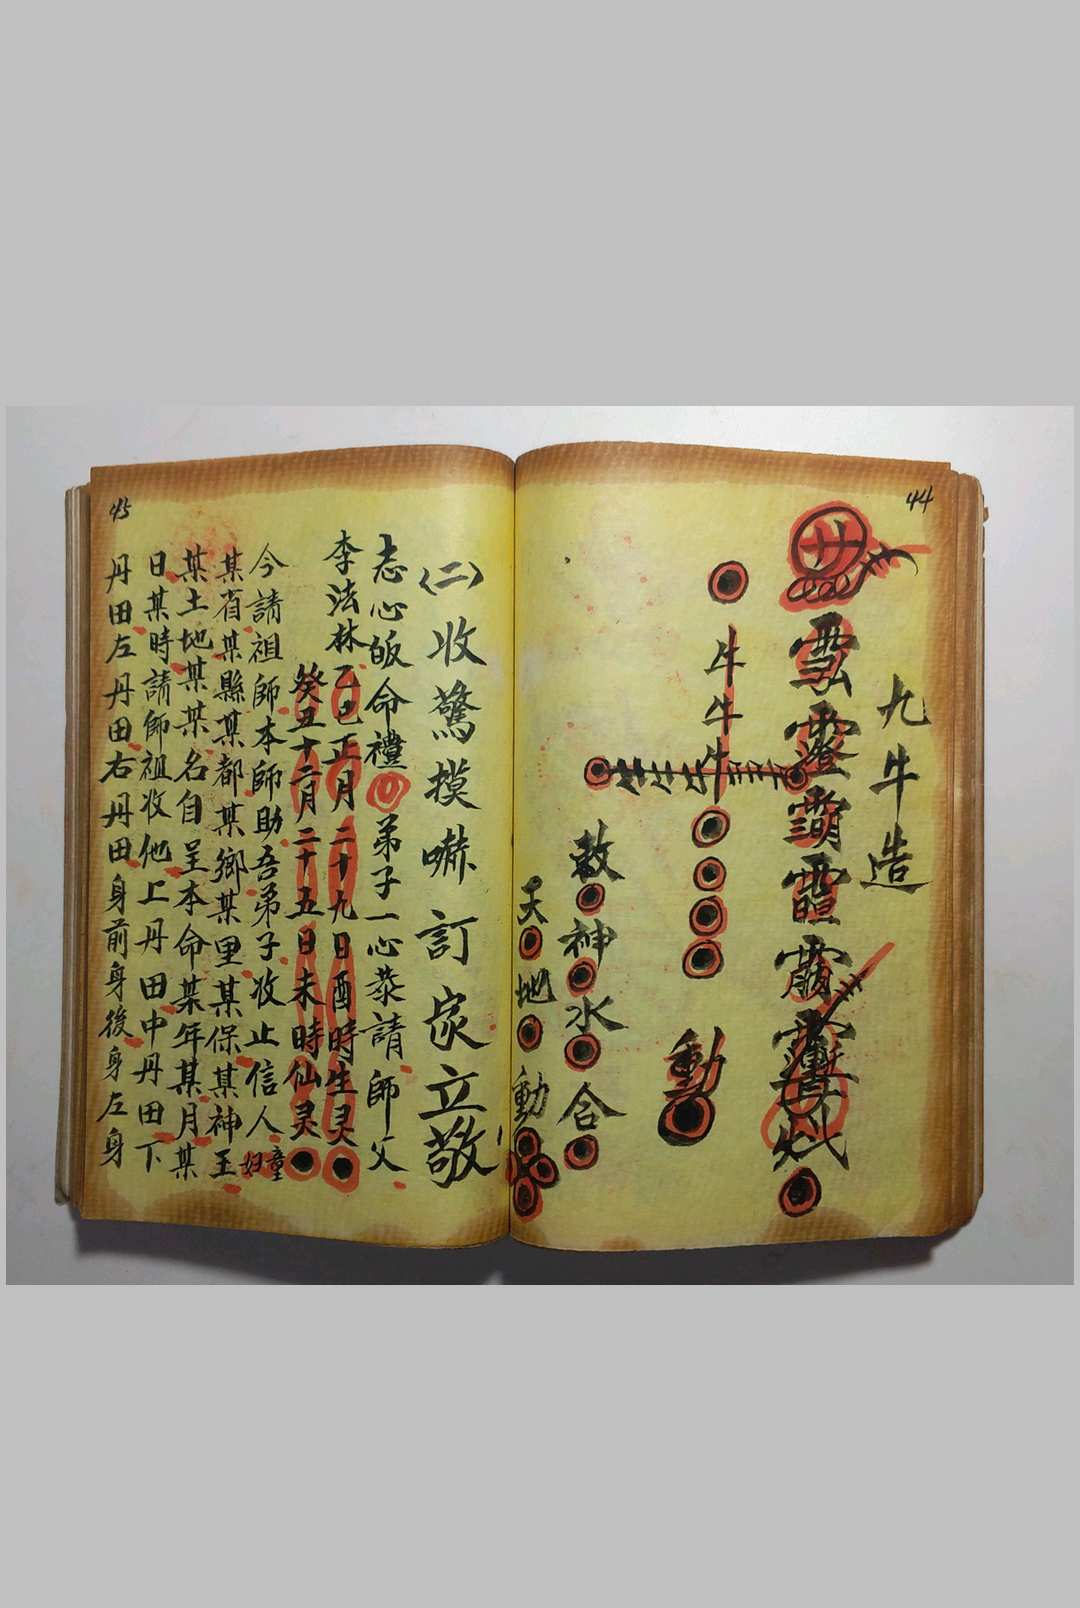 44
九牛造
牛牛牛
動
敕神水合
天地動
45
〈二〉收驚摸嚇訂家立敬
志心皈命禮弟子一心恭請師父
李法林乙巳正月二十九日酉時生灵
癸丑十二月二十五日未時仙灵
今請祖師本師助吾弟子收止信人童妇
某省某縣某都某鄉某里某保某神王
某土地某某名自呈本命某年某月某
日某時請師祖收他上丹田中丹田下
丹田左丹田右丹田身前身後身左身